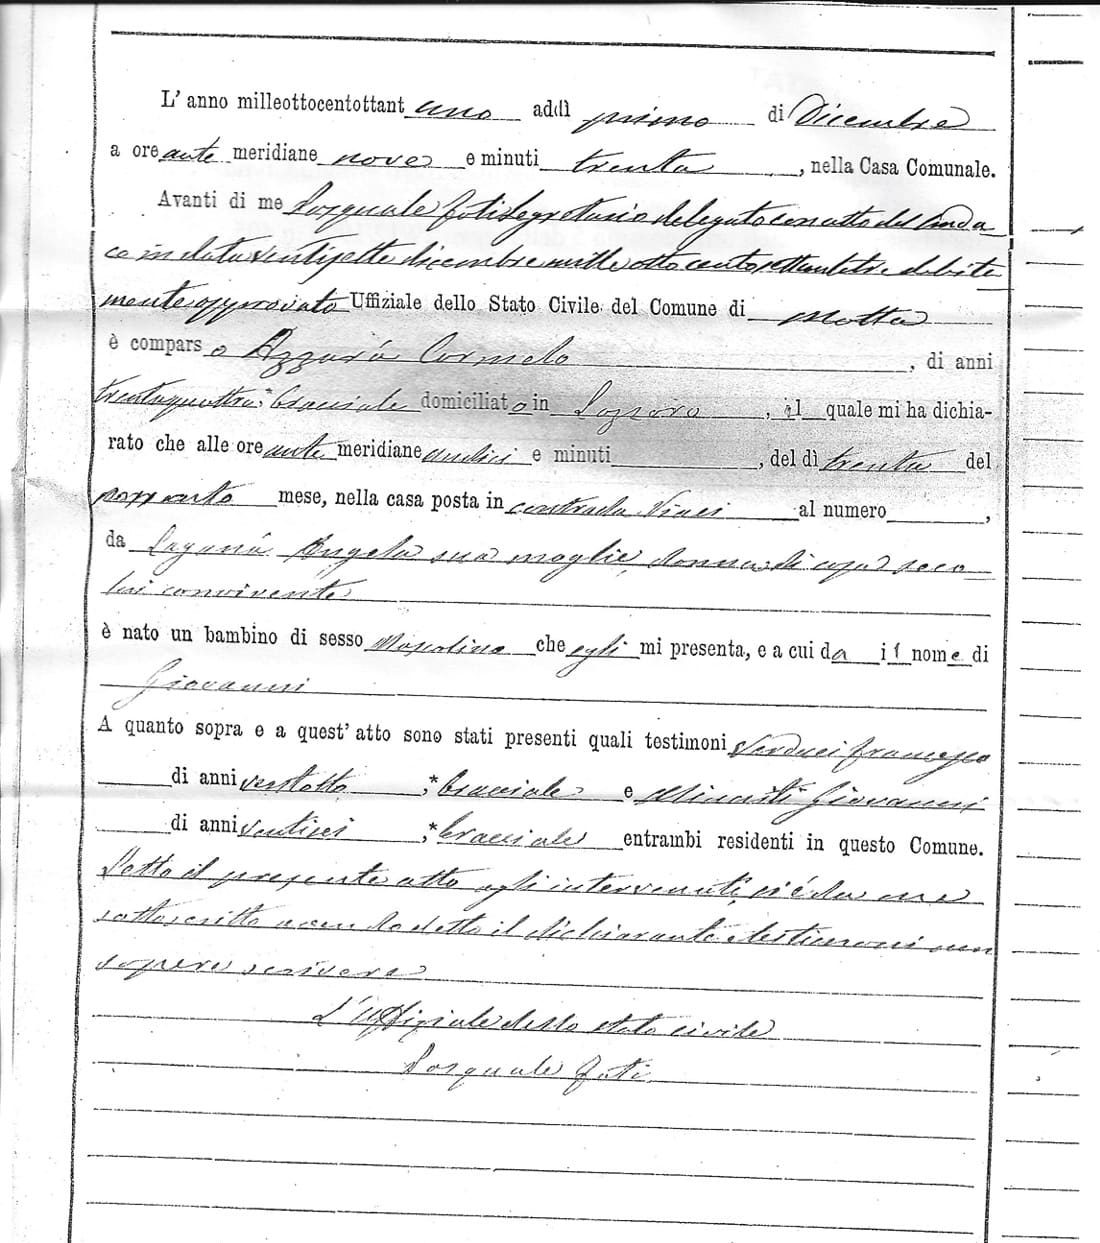 L' anno milleottocentottant uno addì primo di Dicembre
a ore ante meridiane nove e minuti trenta, nella Casa Comunale.
Avanti di me Pasquale Foti Segretario delegato con atto del Sinda
co in data ventisette dicembre mille otto cento settantatre debita
mente approvato Uffiziale dello Stato Civile del Comune di Motta
è compars o Azzarà Carmelo, di anni
trentaquattro, * bracciale domiciliato in Lazzaro, il quale mi ha dichia-
rato che alle ore ante meridiane undici e minuti, del dì trenta del
passato mese, nella casa posta in contrada Vinci al numero,
da Laganà Angela sua moglie, donna di casa seco
lui convivente
è nato un bambino di sesso Mascolino che egli mi presenta, e a cui dà il nome di
Giovanni
A quanto sopra e a quest' atto sono stati presenti quali testimoni Verduci Francesco
di anni ventotto, * bracciale e Minasi Giovanni
di anni ventisei, * bracciale entrambi residenti in questo Comune.
Letto il presente atto agli intervenuti, si è da me
sottoscritto avendo detto il dichiarante e testimoni non
sapere scrivere
L'Uffiziale dello stato civile
Pasquale Foti